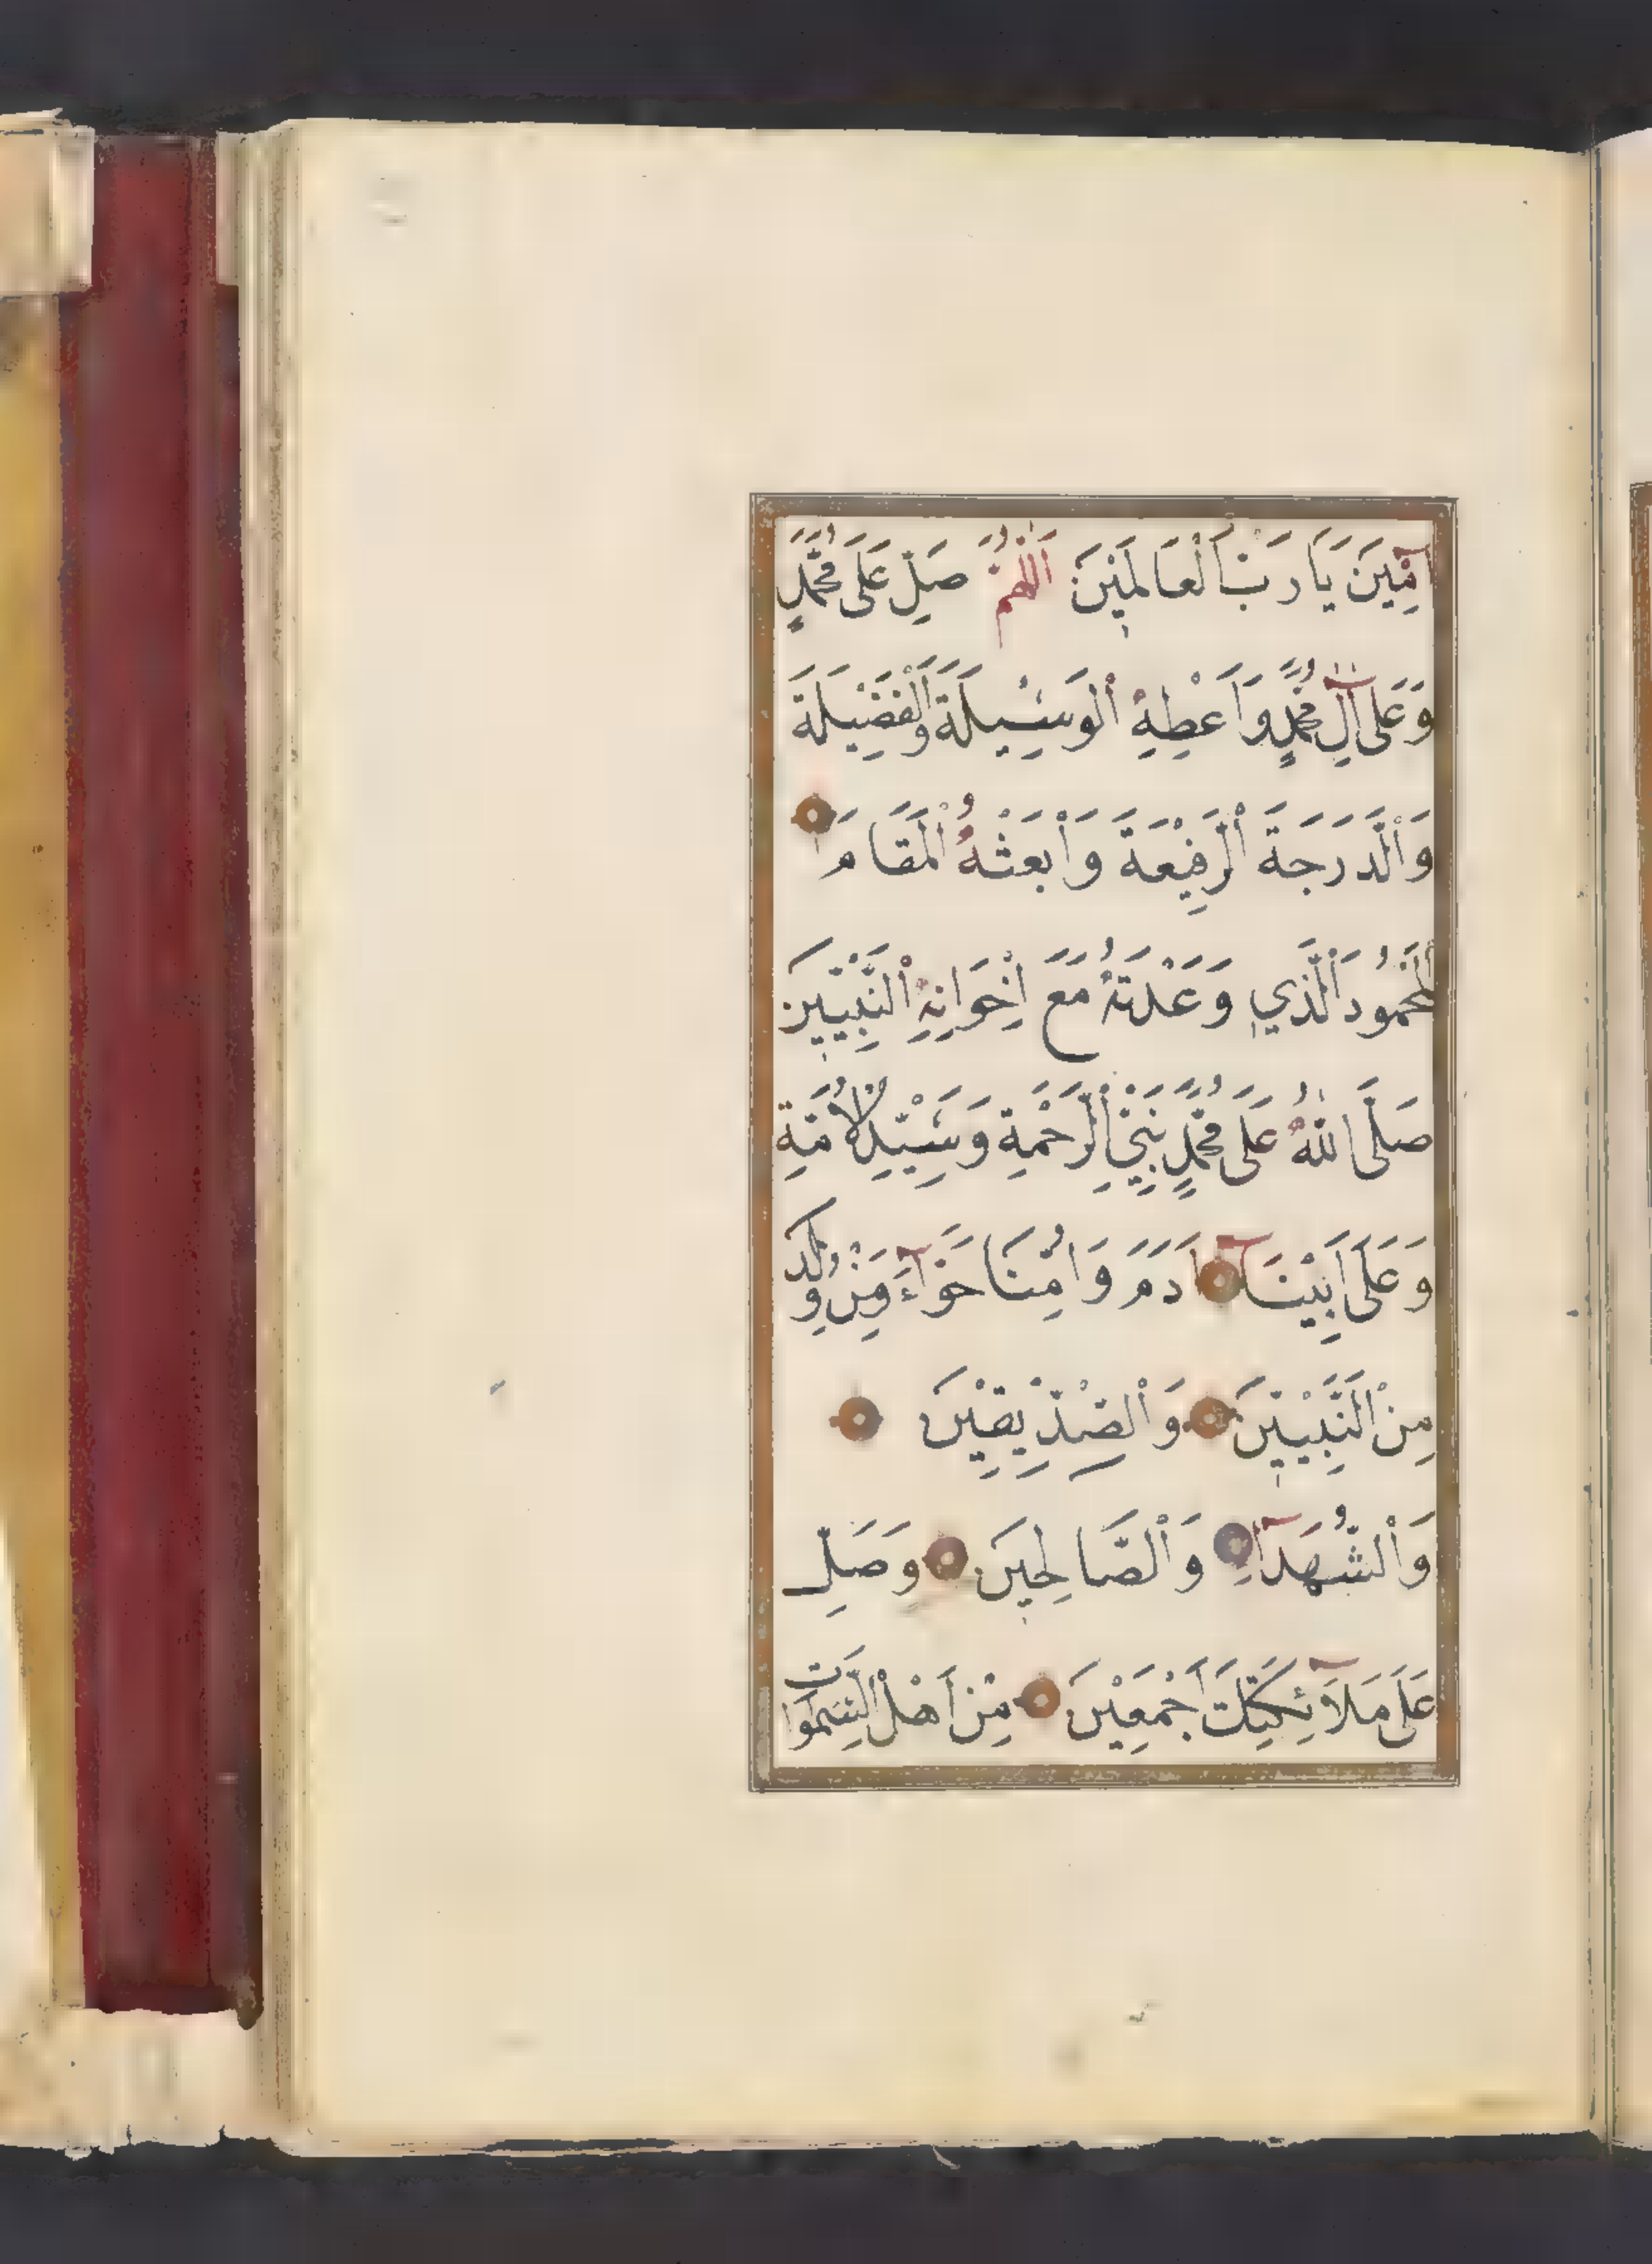 اٰمِيْنَ يَا رَبَّ الْعَالَمِيْنَ اَللّٰهُمَّ صَلِّ عَلَى مُحَمَّدٍ
وَعَلَى اٰلِ مُحَمَّدٍ وَاَعْطِهِ الْوَسِيْلَةَ وَالْفَضِيْلَةَ
وَالدَّرَجَةَ الرَّفِيْعَةَ وَابْعَثْهُ الْمَقَامَ
الْمَحْمُودَ الَّذِي وَعَدْتَهُ مَعَ اِخْوَانِهِ النَّبِيِّيْنَ
صَلَّى اللّٰهُ عَلَى مُحَمَّدٍ نَبِيِّ الرَّحْمَةِ وَسَيِّدِ الْاُمَّةِ
وَعَلَى اَبِيْنَا اٰدَمَ وَاُمِّنَا حَوَّآءَ وَمَنْ وَلَدَ
مِنَ النَّبِيِّيْنَ وَالصِّدِّيْقِيْنَ
وَالشُّهَدَآءِ وَالصَّالِحِيَن وَصَلِّ
عَلَى مَلَآئِكَتِكَ اَجْمَعِيْنَ مِنْ اَهْلِ السَّمٰوَاتِ